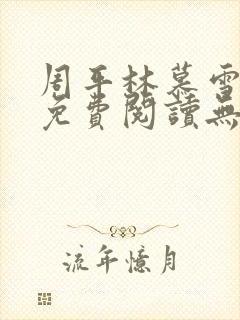 周平林慕雪
免費閱讀無
流年憶月